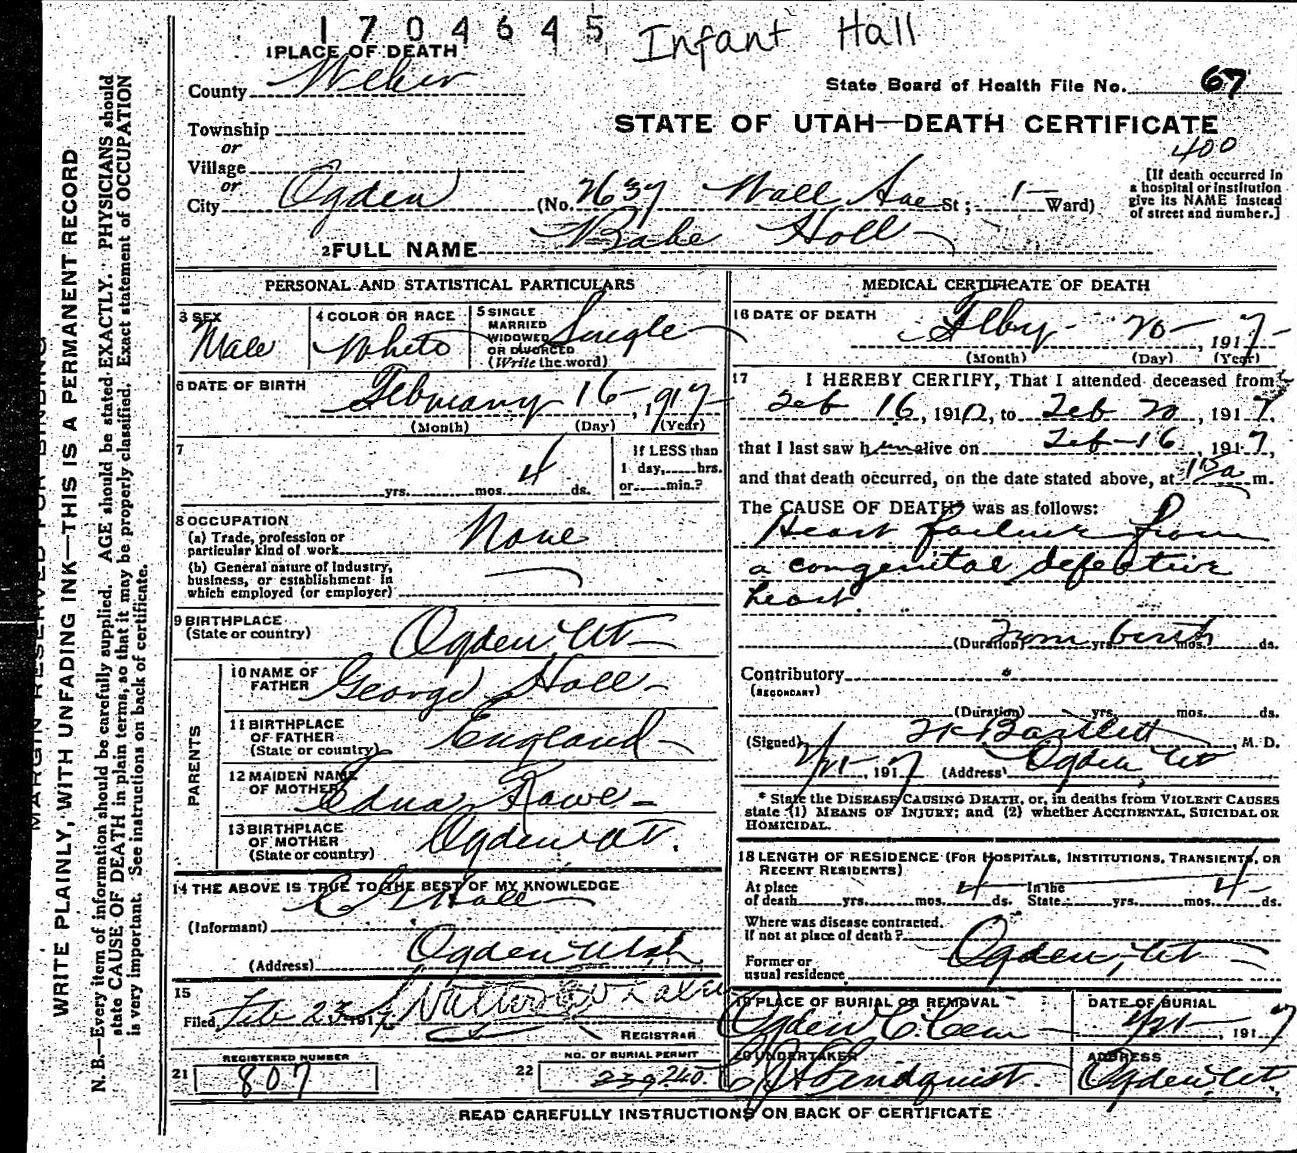 1704645 Infant Hall
1 PLACE OF DEATH
County Weber
State Board of Health File No. 67
Township
or
Village
or
City Ogden (No. 2637 Wall Ave St; 1 Ward)
STATE OF UTAH—DEATH CERTIFICATE
400
[If death occurred in
a hospital or institution
give its NAME instead
of street and number.]
2 FULL NAME Babe Hall
PERSONAL AND STATISTICAL PARTICULARS
3 SEX
Male
4 COLOR OR RACE
White
5 SINGLE
MARRIED
WIDOWED
OR DIVORCED
(Write the word)
Single
6 DATE OF BIRTH
February 16, 1917
(Month) (Day) (Year)
7
yrs. mos. 4 ds.
If LESS than
1 day, hrs.
or min.?
8 OCCUPATION
(a) Trade, profession or
particular kind of work None
(b) General nature of industry,
business, or establishment in
which employed (or employer)
9 BIRTHPLACE
(State or country) Ogden Ut
PARENTS
10 NAME OF
FATHER George Hall
11 BIRTHPLACE
OF FATHER
(State or country) England
12 MAIDEN NAME
OF MOTHER Edna Rawe
13 BIRTHPLACE
OF MOTHER
(State or country) Ogden Ut.
14 THE ABOVE IS TRUE TO THE BEST OF MY KNOWLEDGE
(Informant) Hall
(Address) Ogden Utah
15
Filed, Feb 23 1917
REGISTRAR
REGISTERED NUMBER
21 807
NO. OF BURIAL PERMIT
22 239 240.
MEDICAL CERTIFICATE OF DEATH
16 DATE OF DEATH
Feby 20, 1917
(Month) (Day) (Year)
17 I HEREBY CERTIFY, That I attended deceased from
Feb 16, 1917, to Feb 20, 1917,
that I last saw him alive on Feb-16, 1917,
and that death occurred, on the date stated above, at m.
The CAUSE OF DEATH* was as follows:
Heart failure from
a congenital defective
heart.
(Duration) from birth yrs. mos. ds.
Contributory
(SECONDARY)
(Duration) yrs. mos. ds.
(Signed) Bartlett, M. D.
2/21, 1917 (Address) Ogden, Ut
* State the DISEASE CAUSING DEATH, or, in deaths from VIOLENT CAUSES
state (1) MEANS OF INJURY; and (2) whether ACCIDENTAL, SUICIDAL OR
HOMICIDAL.
18 LENGTH OF RESIDENCE (FOR HOSPITALS, INSTITUTIONS, TRANSIENTS, OR
RECENT RESIDENTS)
At place In the
of death yrs. mos. 4 ds. State yrs. mos. 4 ds.
Where was disease contracted.
If not at place of death?
Former or
usual residence Ogden, Ut
19 PLACE OF BURIAL OR REMOVAL
Ogden C. Cem
DATE OF BURIAL
2/21, 1917
20 UNDERTAKER
Lindquist.
ADDRESS
Ogden Ut.
READ CAREFULLY INSTRUCTIONS ON BACK OF CERTIFICATE
MARGIN RESERVED FOR BINDING
WRITE PLAINLY, WITH UNFADING INK—THIS IS A PERMANENT RECORD
N. B.—Every item of information should be carefully supplied. AGE should be stated EXACTLY. PHYSICIANS should
state CAUSE OF DEATH in plain terms, so that it may be properly classified. Exact statement of OCCUPATION
is very important. See instructions on back of certificate.